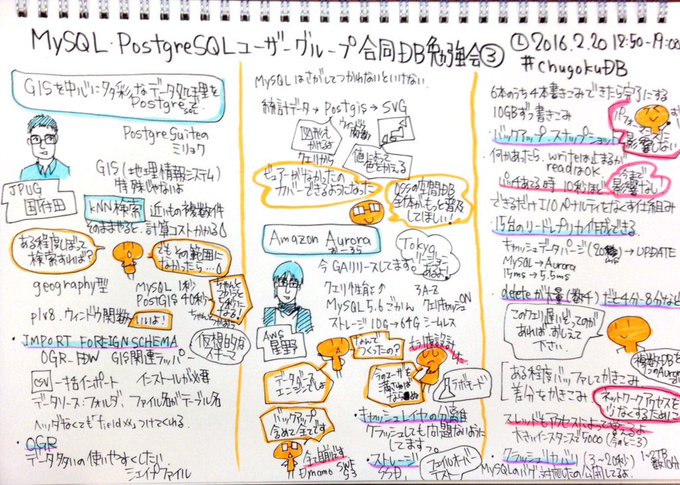 MySQL・PostgreSQLユーザーグループ合同DB勉強会③
2016.2.20 12:50-19:00
#ChugokuDB
GISを中心に多彩なデータ処理を
Postgreで
SQL
PostgreSuitea
ミリョク
GIS(地理情報システム)
特殊じゃないよ
JPUG
国府田
kNN検索 近いもの複数件
そのままやると、計算コストかかる
ある程度しぼって
検索すれば?
でもその範囲に
なかったら…
geography型
MySQL 1秒
PostGIS 40秒
plv8.ウィンドウ関数
いいよ!
・IMPORT FOREIGN SCHEMA
仮想的な
スキーマ
OGR-FDW GIS関連ラッパー
CSV 一括インポート インストールが必要
データソース:フォルダ ファイル名がテーブル名
ヘッダなくても「field_x」つけてくれる
・OGR
データタダいの使いやすくしたい
シェイプファイル
MySQLはさがしてつかれないといけない
統計データ→Postgis→SVG
図形えが
かける
クエリから
ウィンドウ
関数
値によって
色をかえる
ビューアーがなかったの
カバーできるようになった
OSSの空間DB
全体がもっと普及
してほしい!
Amazon Aurora
オーロラ
Tokyo
リージョン
あるよ!
今GAリリースしてます。
クエリ性能 3AZ
MySQL5.6ごかん クエリキャッシュON
ストレージ 10G→64T シームレス
AWS
星野
なんで
つくったの?
データベース
エンジンですよ
バックアップ
含めて全てです
ラボモード
・キャッシュレイヤの分離
クラッシュしても問題ないように
してます。
・ストレージ
フェイルオーバー
テスト!
6本のうち4本書きこみできたら完了にする
10GBずつ書きこみ
パフォーマンスに
影響しない
バックアップ、スナップショット
何かあったら、writeは止まるが
readはOK
今まで
影響なし
できるだけI/Oペナルティをなくす仕組み
15台のリードレプリカ作成できる。
キャッシュデータパージ → UPDATE
MySQL → Aurora
15ms → 5.5ms
deleteが大量(数千)だと4分~8分など
このクエリ遅いよってのが
あれば、おしえて
下さい。
ある程度バッファしてかきこみ
差分をかきこみ
ネットワークアクセスを
少なくするために
スレッドもアクセスによって変えるよ
大きいインスタンスで5000(今のところ)
・クラッシュリカバリ (3~20秒)
MySQLのバグ対応したの公開してるよ。